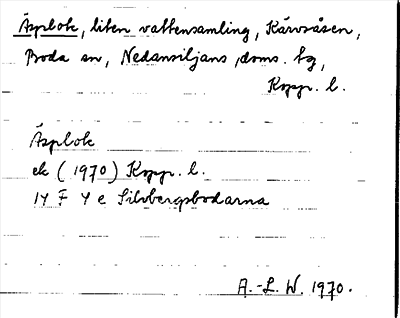 Äsplok, liten vattensamling, Kårvsåsen,
Boda sn, Nedansiljans doms. tg,
Kopp. l.
Äsplok
ek (1970) Kopp. l.
14 F 4 e Silvbergsbodarna
A.-L. W. 1970.